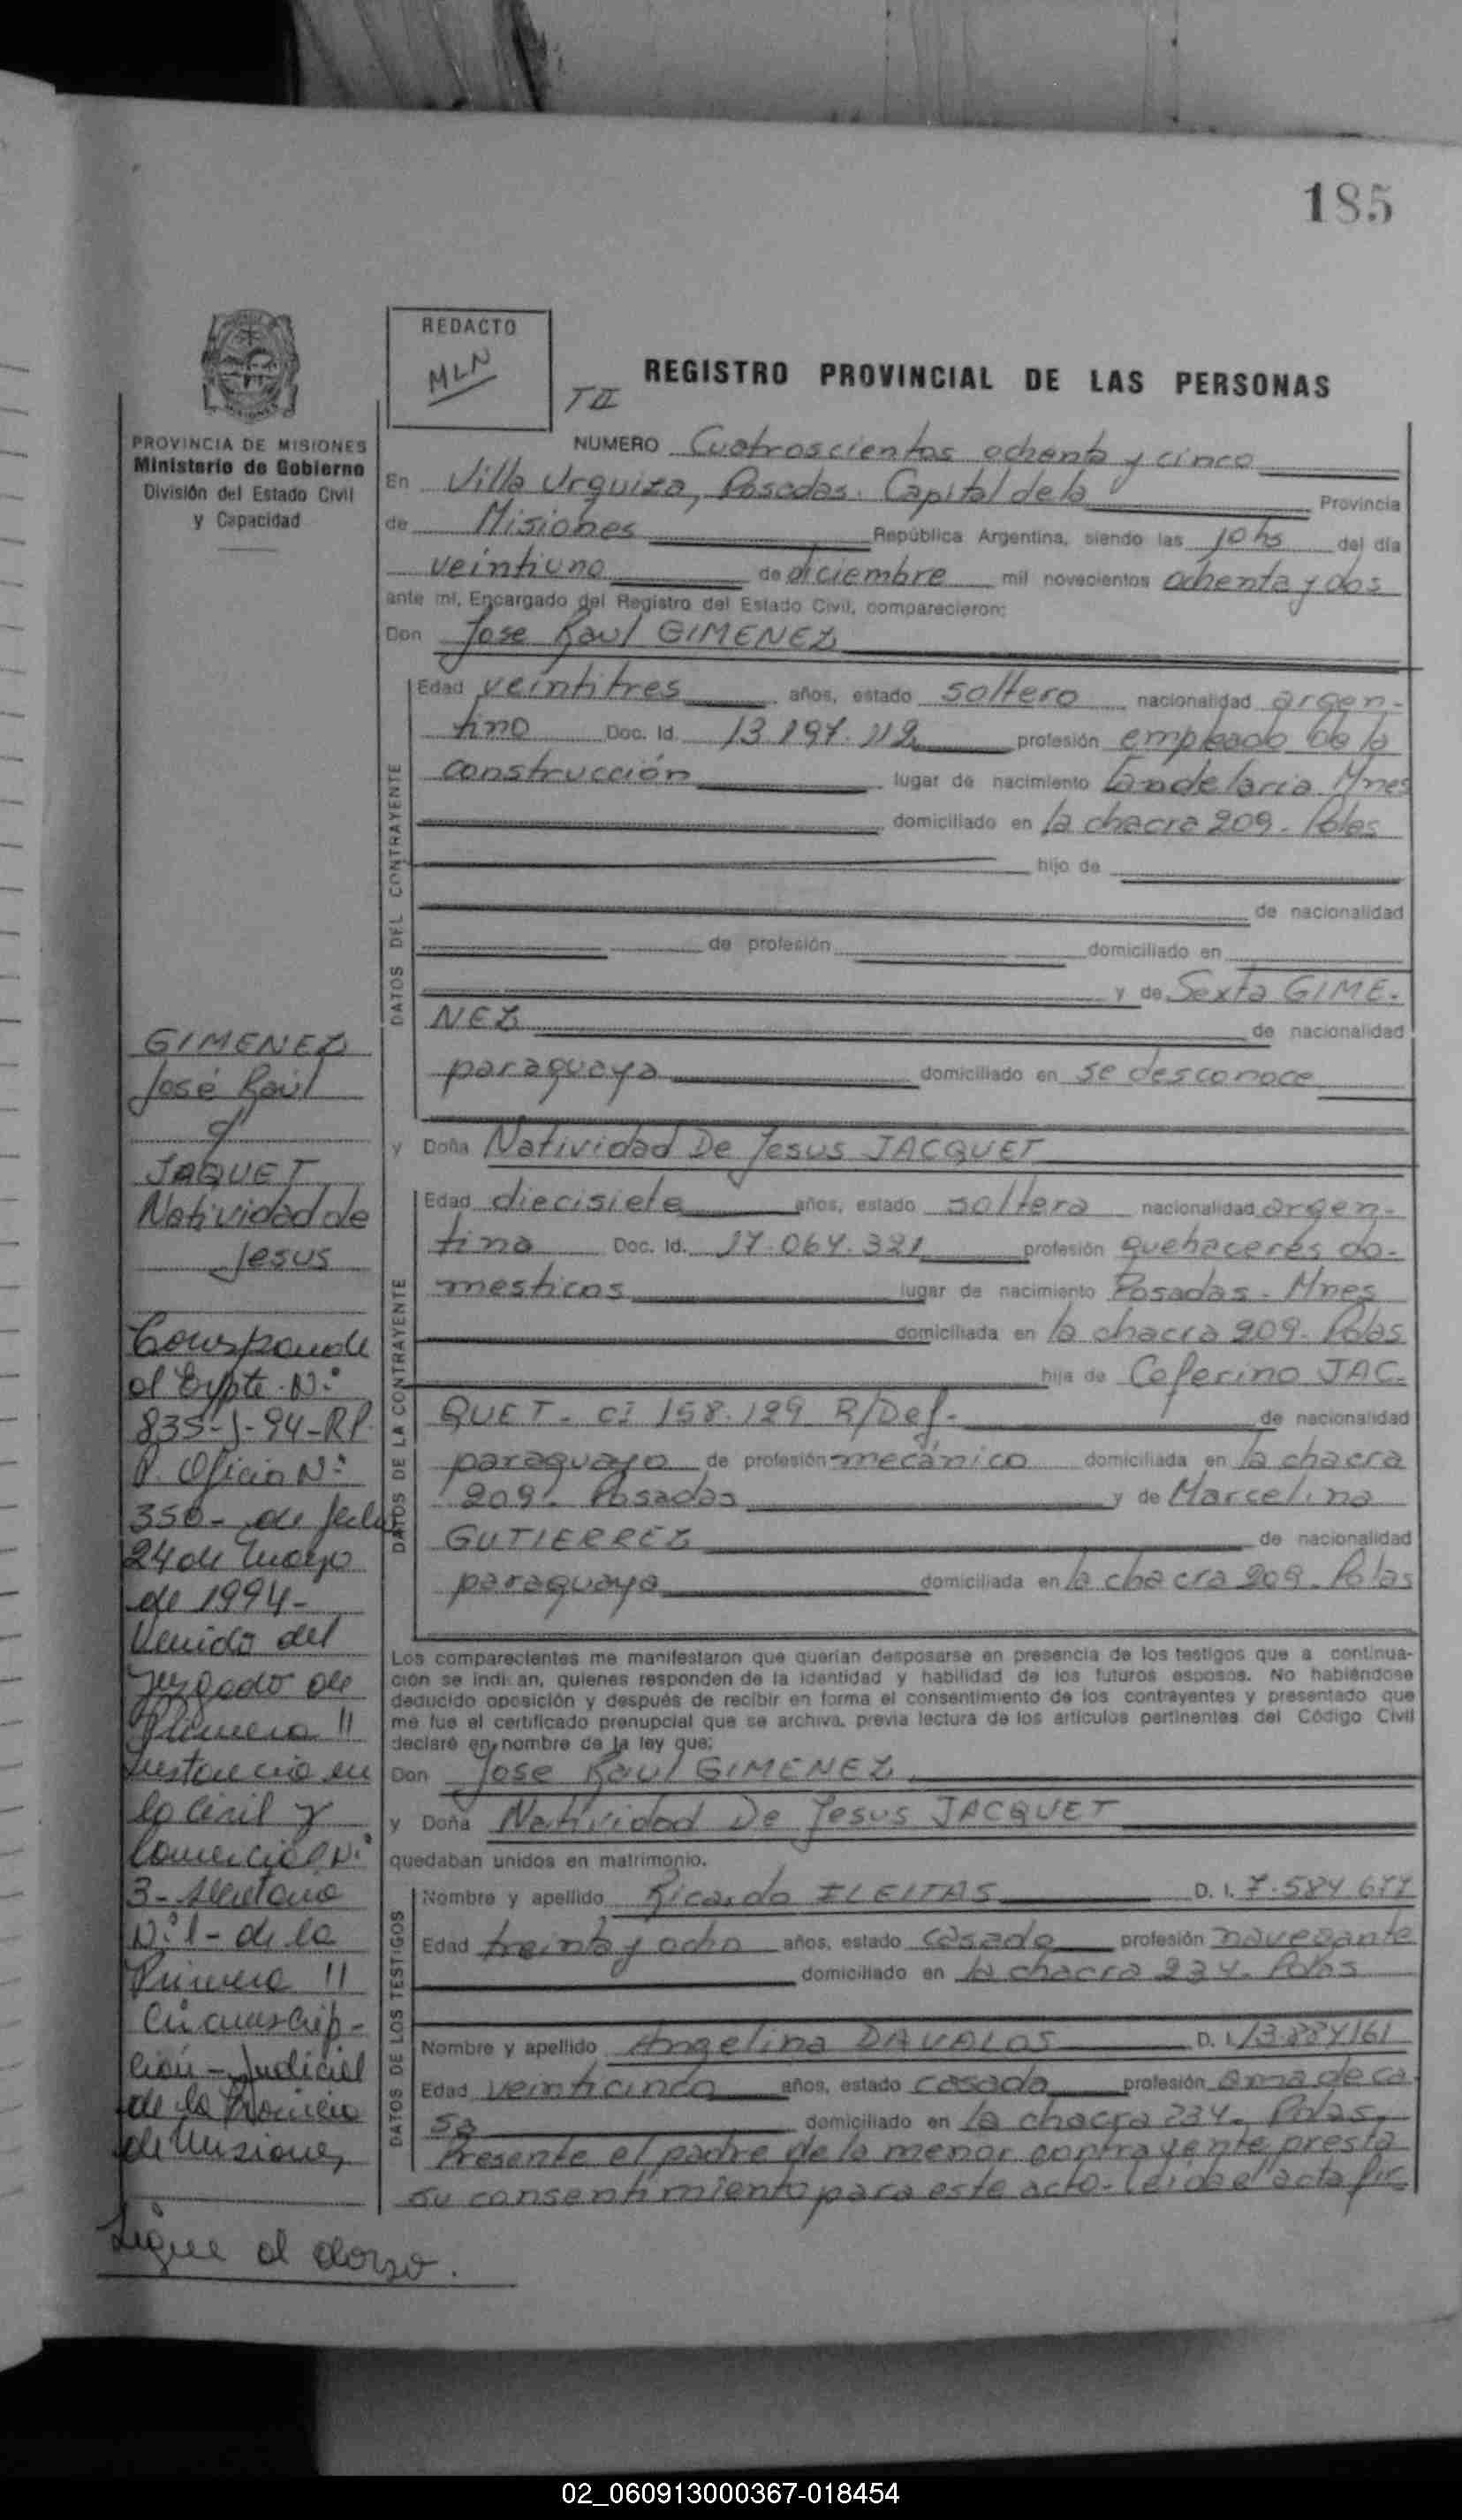 185
REDACTO
MLN
T II
REGISTRO PROVINCIAL DE LAS PERSONAS
PROVINCIA DE MISIONES
Ministerio de Gobierno
División del Estado Civil
y Capacidad
NUMERO Cuatroscientos ochenta y cinco
En Villa Urquiza, Posadas. Capital de la Provincia
de Misiones República Argentina, siendo las 10 hs del día
veintiuno de diciembre mil novecientos ochenta y dos
ante mí, Encargado del Registro del Estado Civil, comparecieron:
Don Jose Raul GIMENEZ
DATOS DEL CONTRAYENTE
Edad veintitres años, estado soltero nacionalidad argen-
tino Doc. Id. 13.197.112 profesión empleado de la
construcción lugar de nacimiento Candelaria Mnes
domiciliado en la chacra 209. Pdas
hijo de
de nacionalidad
de profesión domiciliado en
y de Sexta GIME-
NEZ de nacionalidad
paraguaya domiciliado en se desconoce
y Doña Natividad De Jesus JACQUET
DATOS DE LA CONTRAYENTE
Edad diecisiete años, estado soltera nacionalidad argen-
tina Doc. Id. 17.064.321 profesión quehaceres do-
mesticos lugar de nacimiento Posadas - Mnes
domiciliada en la chacra 209. Pdas
hija de Ceferino JAC-
QUET - CI 158.129 R/Def. de nacionalidad
paraguayo de profesión mecánico domiciliada en la chacra
209. Posadas y de Marcelina
GUTIERREZ de nacionalidad
paraguaya domiciliada en la chacra 209. Pdas
Los comparecientes me manifestaron que querían desposarse en presencia de los testigos que a continua-
ción se indican, quienes responden de la identidad y habilidad de los futuros esposos. No habiéndose
deducido oposición y después de recibir en forma el consentimiento de los contrayentes y presentado que
me fue el certificado prenupcial que se archiva, previa lectura de los artículos pertinentes del Código Civil
declaré en nombre de la ley que:
Don Jose Raul GIMENEZ
y Doña Natividad De Jesus JACQUET
quedaban unidos en matrimonio.
DATOS DE LOS TESTIGOS
Nombre y apellido Ricardo FLEITAS D. I. 7.584 677
Edad treinta y ocho años, estado casado profesión navegante
domiciliado en la chacra 234. Pdas
Nombre y apellido Angelina DAVALOS D. I. 13.884161
Edad veinticinco años, estado casada profesión ama de ca
sa domiciliado en la chacra 234. Pdas.
Presente el padre de la menor contrayente presta
su consentimiento para este acto. Leida el acta fir
GIMENEZ
José Raúl
y
JAQUET
Natividad de
Jesus
Corresponde
al Expte. N°
835-J-94-RP.
P. Oficio N°
350- de fecha
24 de Marzo
de 1994-
Venido del
Juzgado de
Primera //
Instancia en
lo Civil y
Comercial N°
3- Secretaria
N°1- de la
Primera //
Circunscrip-
ción - Judicial
de la Provincia
de Misiones,
Sigue al dorso.
02_060913000367-018454